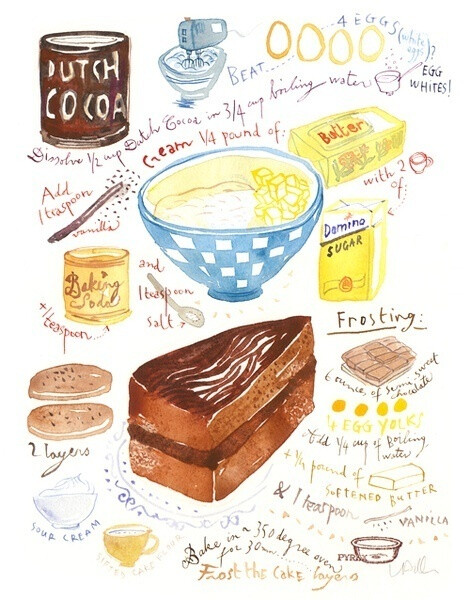 DUTCH
COCOA
BEAT
4 EGGS (white eggs)?
EGG
WHITES!
Dissolve 1/2 cup Dutch Cocoa in 3/4 cup boiling water
Cream 1/4 pound of:
Butter
with 2
of:
Add
1 teaspoon
vanilla
Domino
SUGAR
Baking
Soda
+1 teaspoon
and
1 teaspoon
salt
Frosting:
6 ounces of semi sweet
chocolate
4 EGG YOLKS
Add 1/4 cup of Boiling
water
+ 1/4 pound of
SOFTENED BUTTER
& 1 teaspoon
VANILLA
2 layers
SOUR CREAM
CAKE FLOUR
Bake in a 350 degree oven
for 30 min
PYREX
Frost the CAKE layers